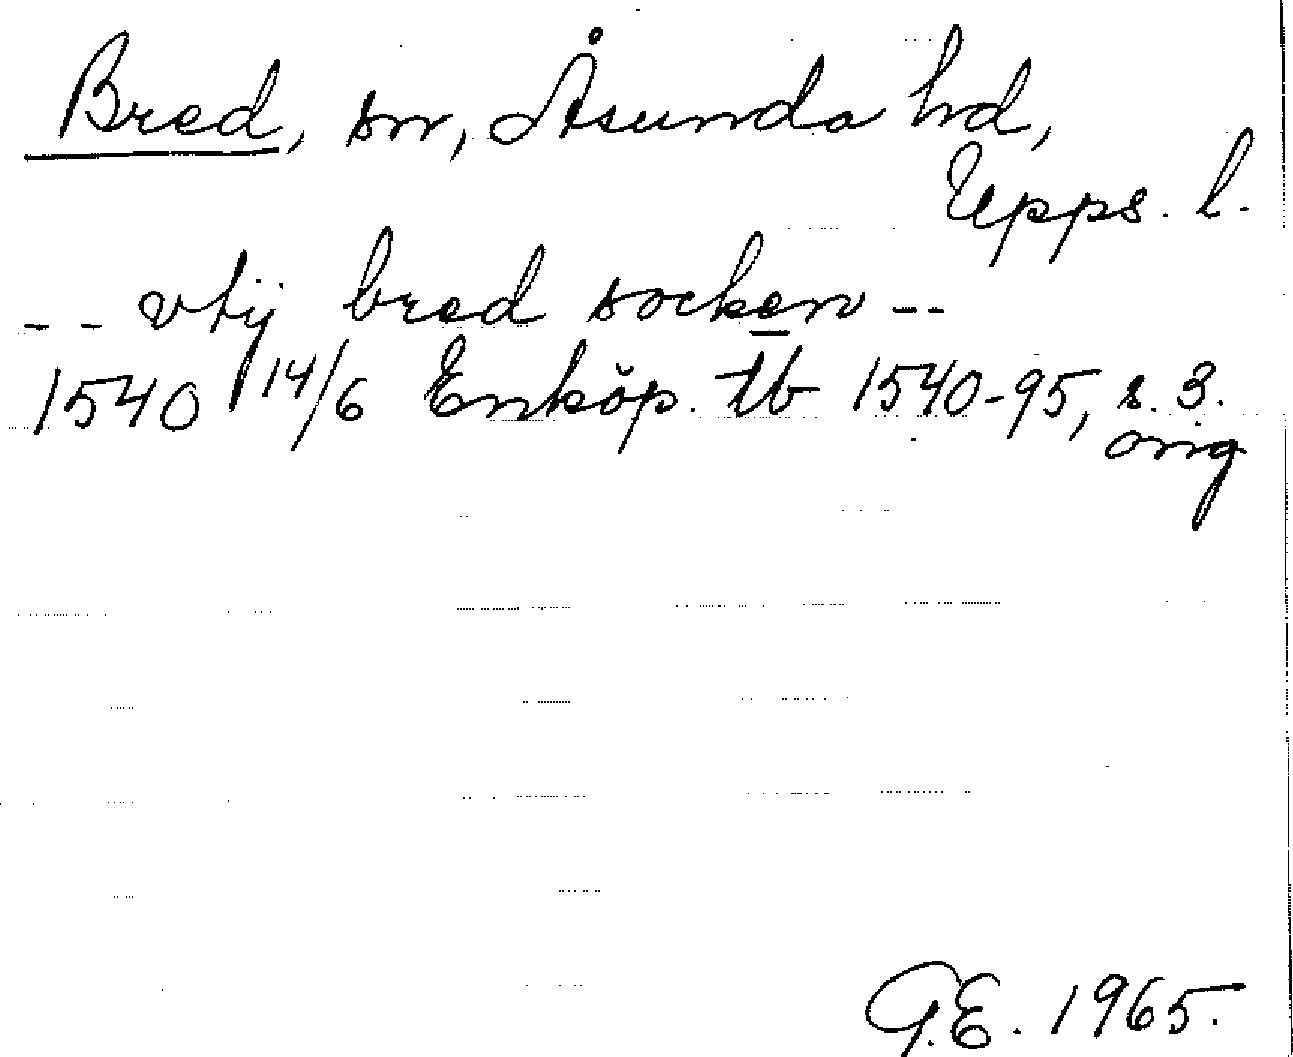 Bred, sn, Åsunda hd,
Upps. l.
-- vtij bred socken --
1540 14/6 Enköp. tb 1540-95, s. 3.
orig
G.E. 1965.